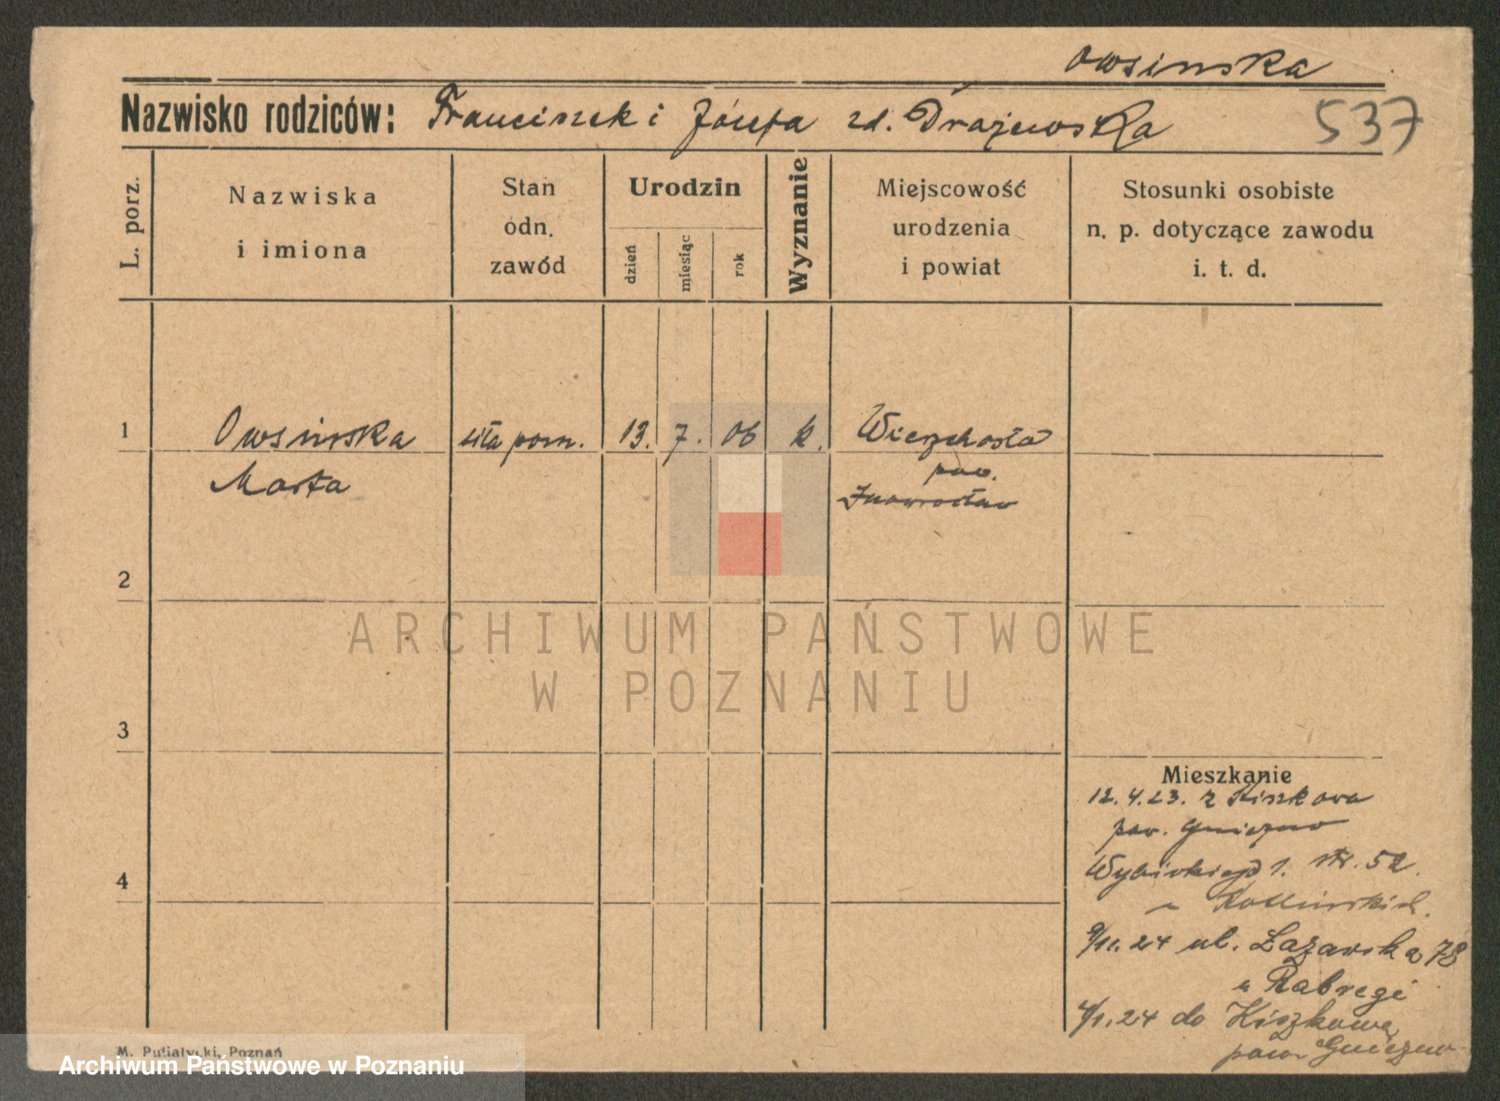 Owsinska
Nazwisko rodziców: Franciszek i Józefa zd. Drajewska
537
L. porz.
Nazwiska
i imiona
Stan
odn.
zawód
Urodzin
dzień
miesiąc
rok
Wyznanie
Miejscowość
urodzenia
i powiat
Stosunki osobiste
n. p. dotyczące zawodu
i. t. d.
1 Owsinska siła pom. 13. 7. 06 k.
Marta pow.
Inowrocław
2
ARCHIWUM PAŃSTWOWE
W POZNANIU
3
Mieszkanie
12.4.23. z Kiszkowa
pow. Gniezno
4
52.
24 ul. Łazarska 78
u
24 do Kiszkowa
pow Gniezno
M. Putiatycki, Poznań
Archiwum Państwowe w Poznaniu